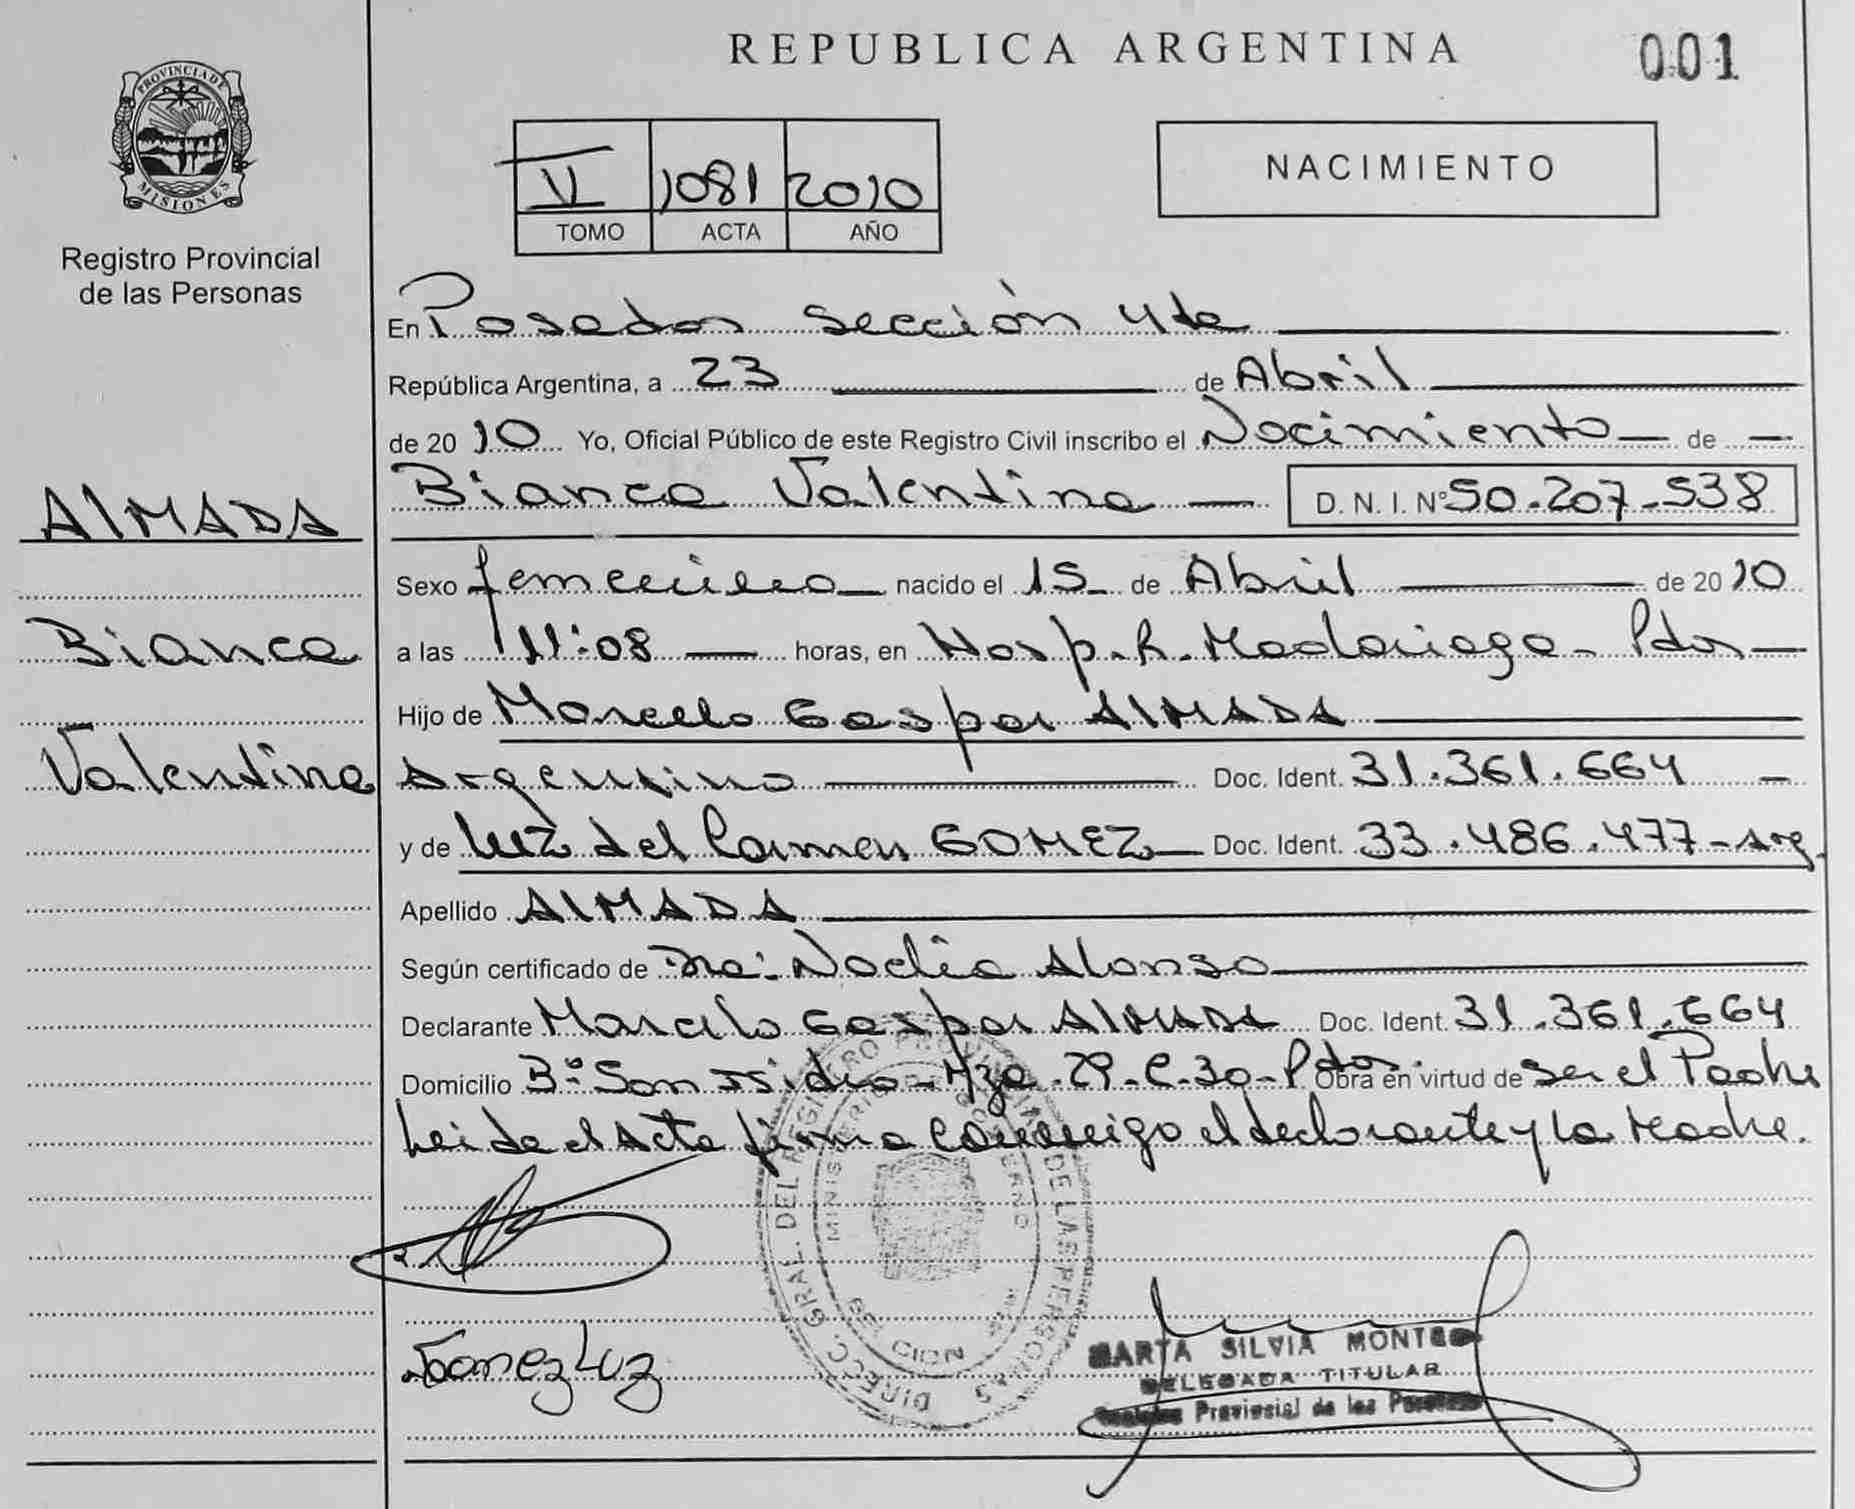 REPUBLICA ARGENTINA
001
PROVINCIA DE
MISIONES
Registro Provincial
de las Personas
V 1081 2010
TOMO ACTA AÑO
NACIMIENTO
En Posadas sección 4ta
República Argentina, a 23 de Abril
de 2010 Yo, Oficial Público de este Registro Civil inscribo el Nacimiento de
Bianca Valentina D. N. I. Nº 50.207.538
Sexo femenino nacido el 15 de Abril de 2010
a las 11:08 horas, en Hosp. R. Madariaga - Pdas
Hijo de Marcelo Gaspar AlMADA
Argentino Doc. Ident. 31.361.664
y de Luz del Carmen GOMEZ Doc. Ident. 33.486.477 - Arg.
Apellido AlMADA
Según certificado de Dra: Noelia Alonso
Declarante Marcelo Gaspar AlMADA Doc. Ident. 31.361.664
Domicilio Bº San Isidro - Mza. 29 - C. 30 - Pdas. Obra en virtud de ser el Padre
Leida el Acta firma conmigo el declarante y la Madre.
AlMADA
Bianca
Valentina
DIRECC. GRAL. DEL REGISTRO PROVINCIAL DE LAS PERSONAS
MINISTERIO DE GOBIERNO
Gomez Luz
MARTA SILVIA
DELEGADA TITULAR
Registro Provincial de las Personas